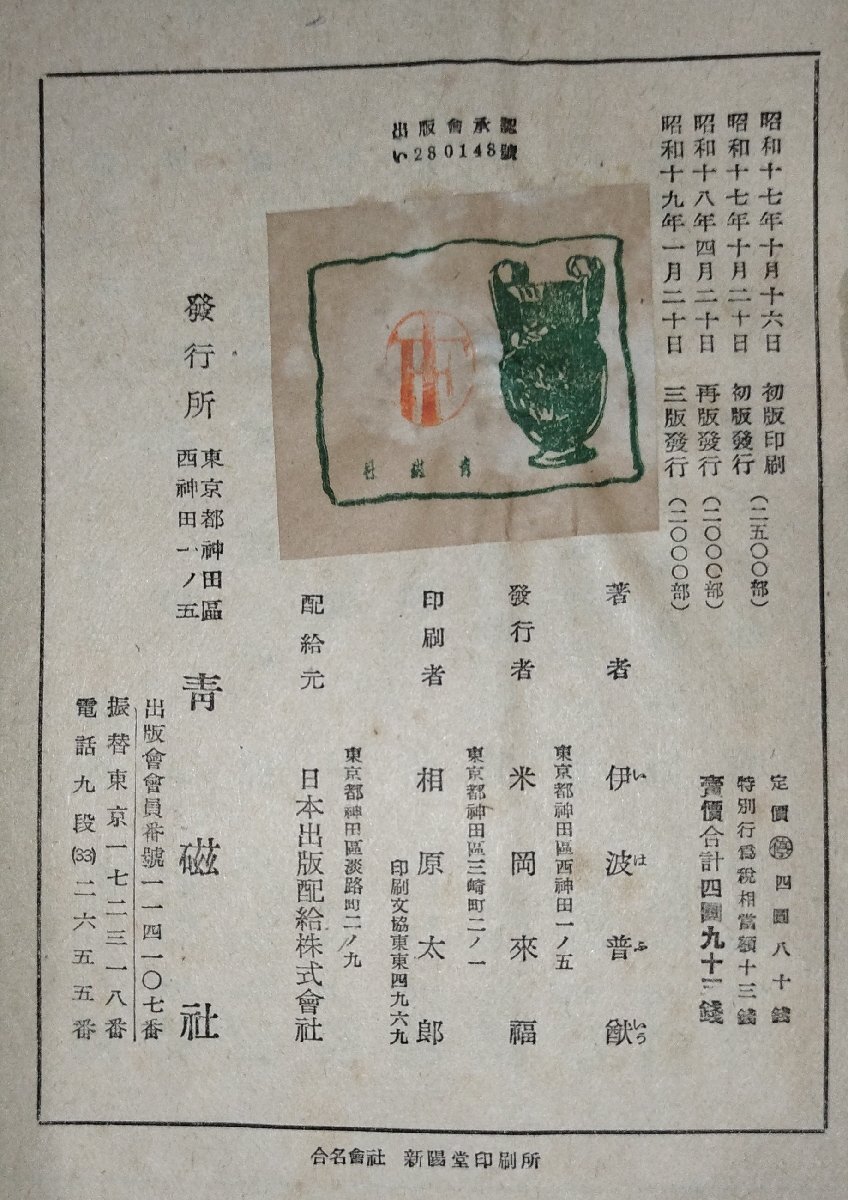 出版會承認
い280148號
昭和十七年十月十六日 初版印刷
昭和十七年十月二十日 初版發行 (二五〇〇部)
昭和十八年四月二十日 再版發行 (二〇〇〇部)
昭和十九年一月二十日 三版發行 (二〇〇〇部)
定價 停 四圓八十錢
特別行爲税相當額十三錢
賣價合計四圓九十三錢
青磁社
著者 伊波普猷
いはふいう
東京都神田區西神田一ノ五
發行者 米岡來福
東京都神田區三崎町二ノ一
印刷者 相原太郎
印刷文協東東四九六九
東京都神田區淡路町二ノ九
配給元 日本出版配給株式會社
發行所 東京都神田區
西神田一ノ五
青磁社
出版會會員番號一一四一〇七番
振替東京一七二三一八番
電話九段(33)二六五五番
合名會社 新陽堂印刷所